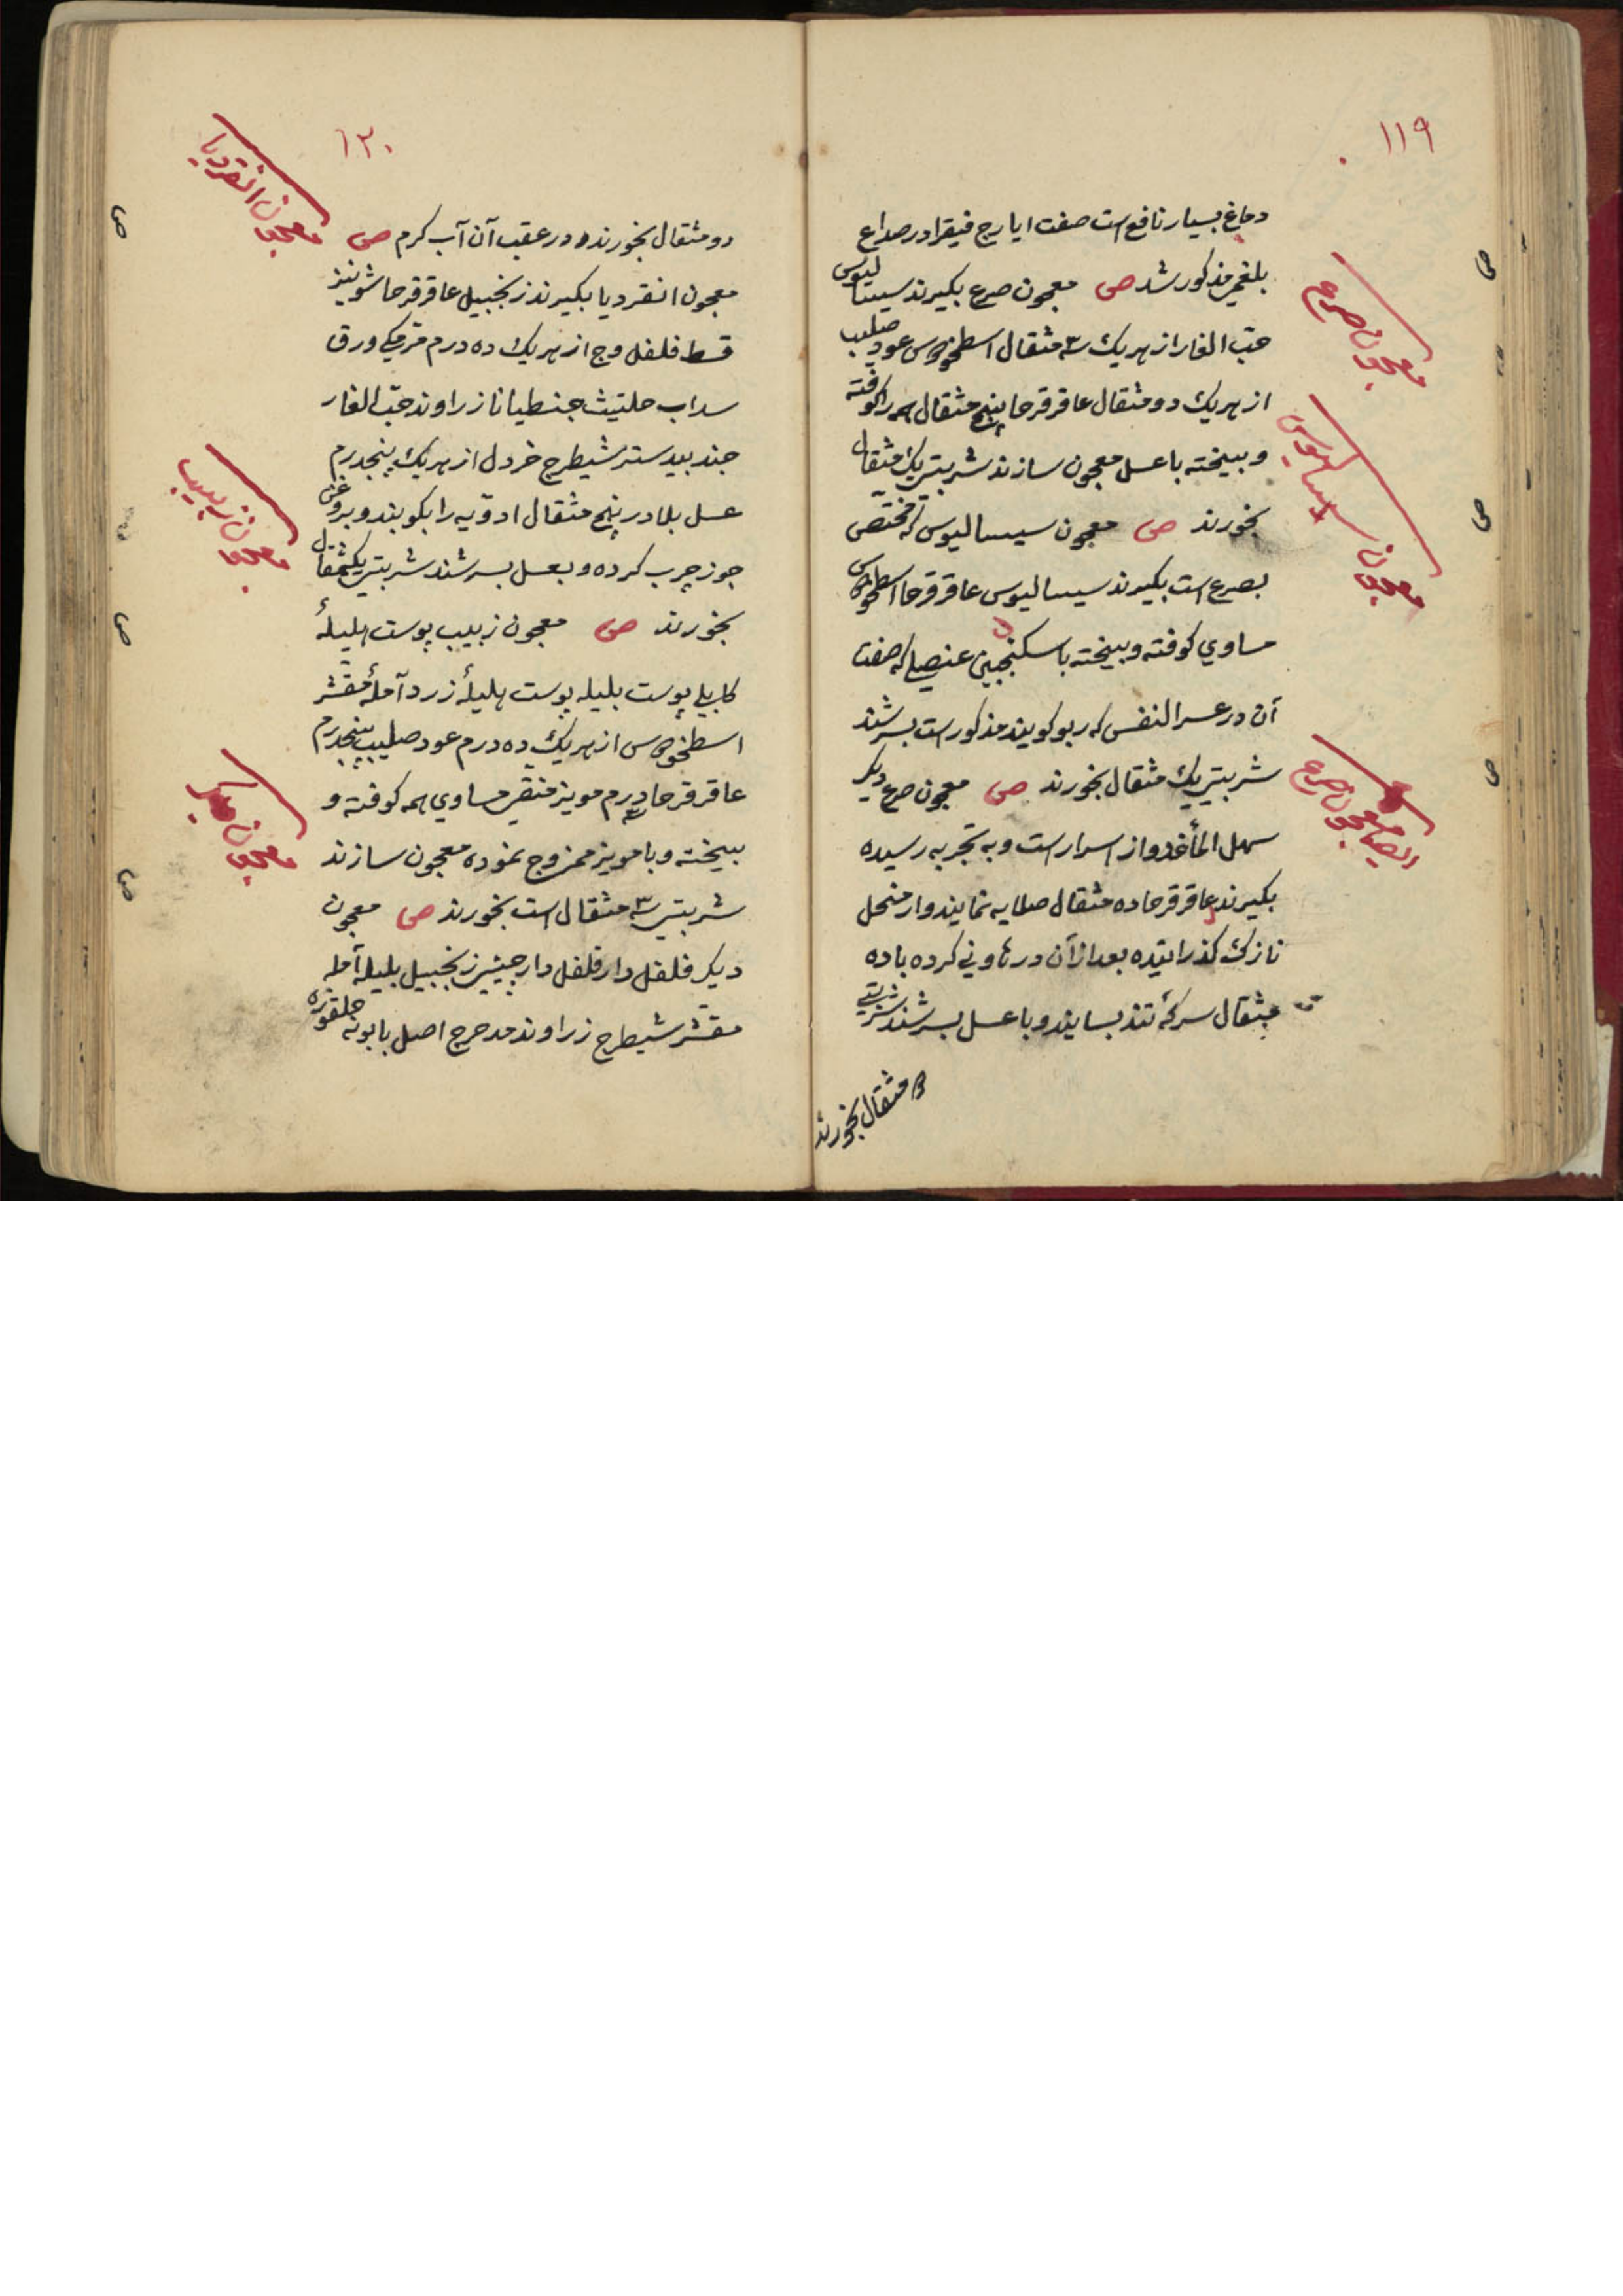 ۱۱۹
دماغ بسیار نافع است صفت ایارج فیقرا در صداع
بلغمی مذکور شد ص معجون صرع بکیرند سیسالیوس
حب الغار از هر یک ۳ مثقال اسطخودوس عود صلیب
از هر یک دو مثقال عاقرقرحا پنج مثقال همه را کوفته
و بیخته با عسل معجون سازند شربتی یک مثقال
بخورند ص معجون سیسالیوس که مختص
بصرع است بکیرند سیسالیوس عاقرقرحا اسطوخودوس
مساوي کوفته و بیخته با سکنجبین عنصلی که صفت
آن در عسر النفس که ربو کویند مذکور است بسرشند
شربتی یک مثقال بخورند ص معجون صرع دیکر
سهل المأخذ و از اسرار است و به تجربه رسیده
بکیرند عاقرقرحا ده مثقال صلایه نمایند و از منخل
نازک کذرانیده بعد از آن در هاونی کرده با ده
مثقال سرکهٔ تند بسایند و با عسل بسرشند شربتی
مثقال بخورند
معجون صرع
معجون سیسالیوس
ایضا معجون صرع
ص
ص
ص
۱۲۰
دو مثقال بخورند و در عقب آن آب کرم ص
معجون انقردیا بکیرند زنجبیل عاقرقرحا شونیز
قسط فلفل وج از هر یک ده درم مرمکی ورق
سداب حلتیث جنطیانا زراوند حب الغار
جند بیدستر شیطرج خردل از هر یک پنجدرم
عسل بلادر پنج مثقال ادویه را بکوبند و بروغن
جوز چرب کرده و بعسل بسرشند شربتی یکمثقال
بخورند ص معجون زبیب پوست هلیلهٔ
کابلی پوست بلیله پوست هلیلهٔ زرد آملهٔ مقشر
اسطخودوس از هر یک ده درم عود صلیب پنجدرم
عاقرقرحا درم مویز منقی مساوي همه کوفته و
بیخته و با مویز ممزوج نموده معجون سازند
شربتی ۳ مثقال است بخورند ص معجون
دیکر فلفل دارفلفل دارچینی زنجبیل بلیله آمله
مقشر شیطرج زراوند مدحرج اصل بابونه جلقوزه
معجون انقردیا
معجون زبیب
معجون دیکر
ص
ص
ص